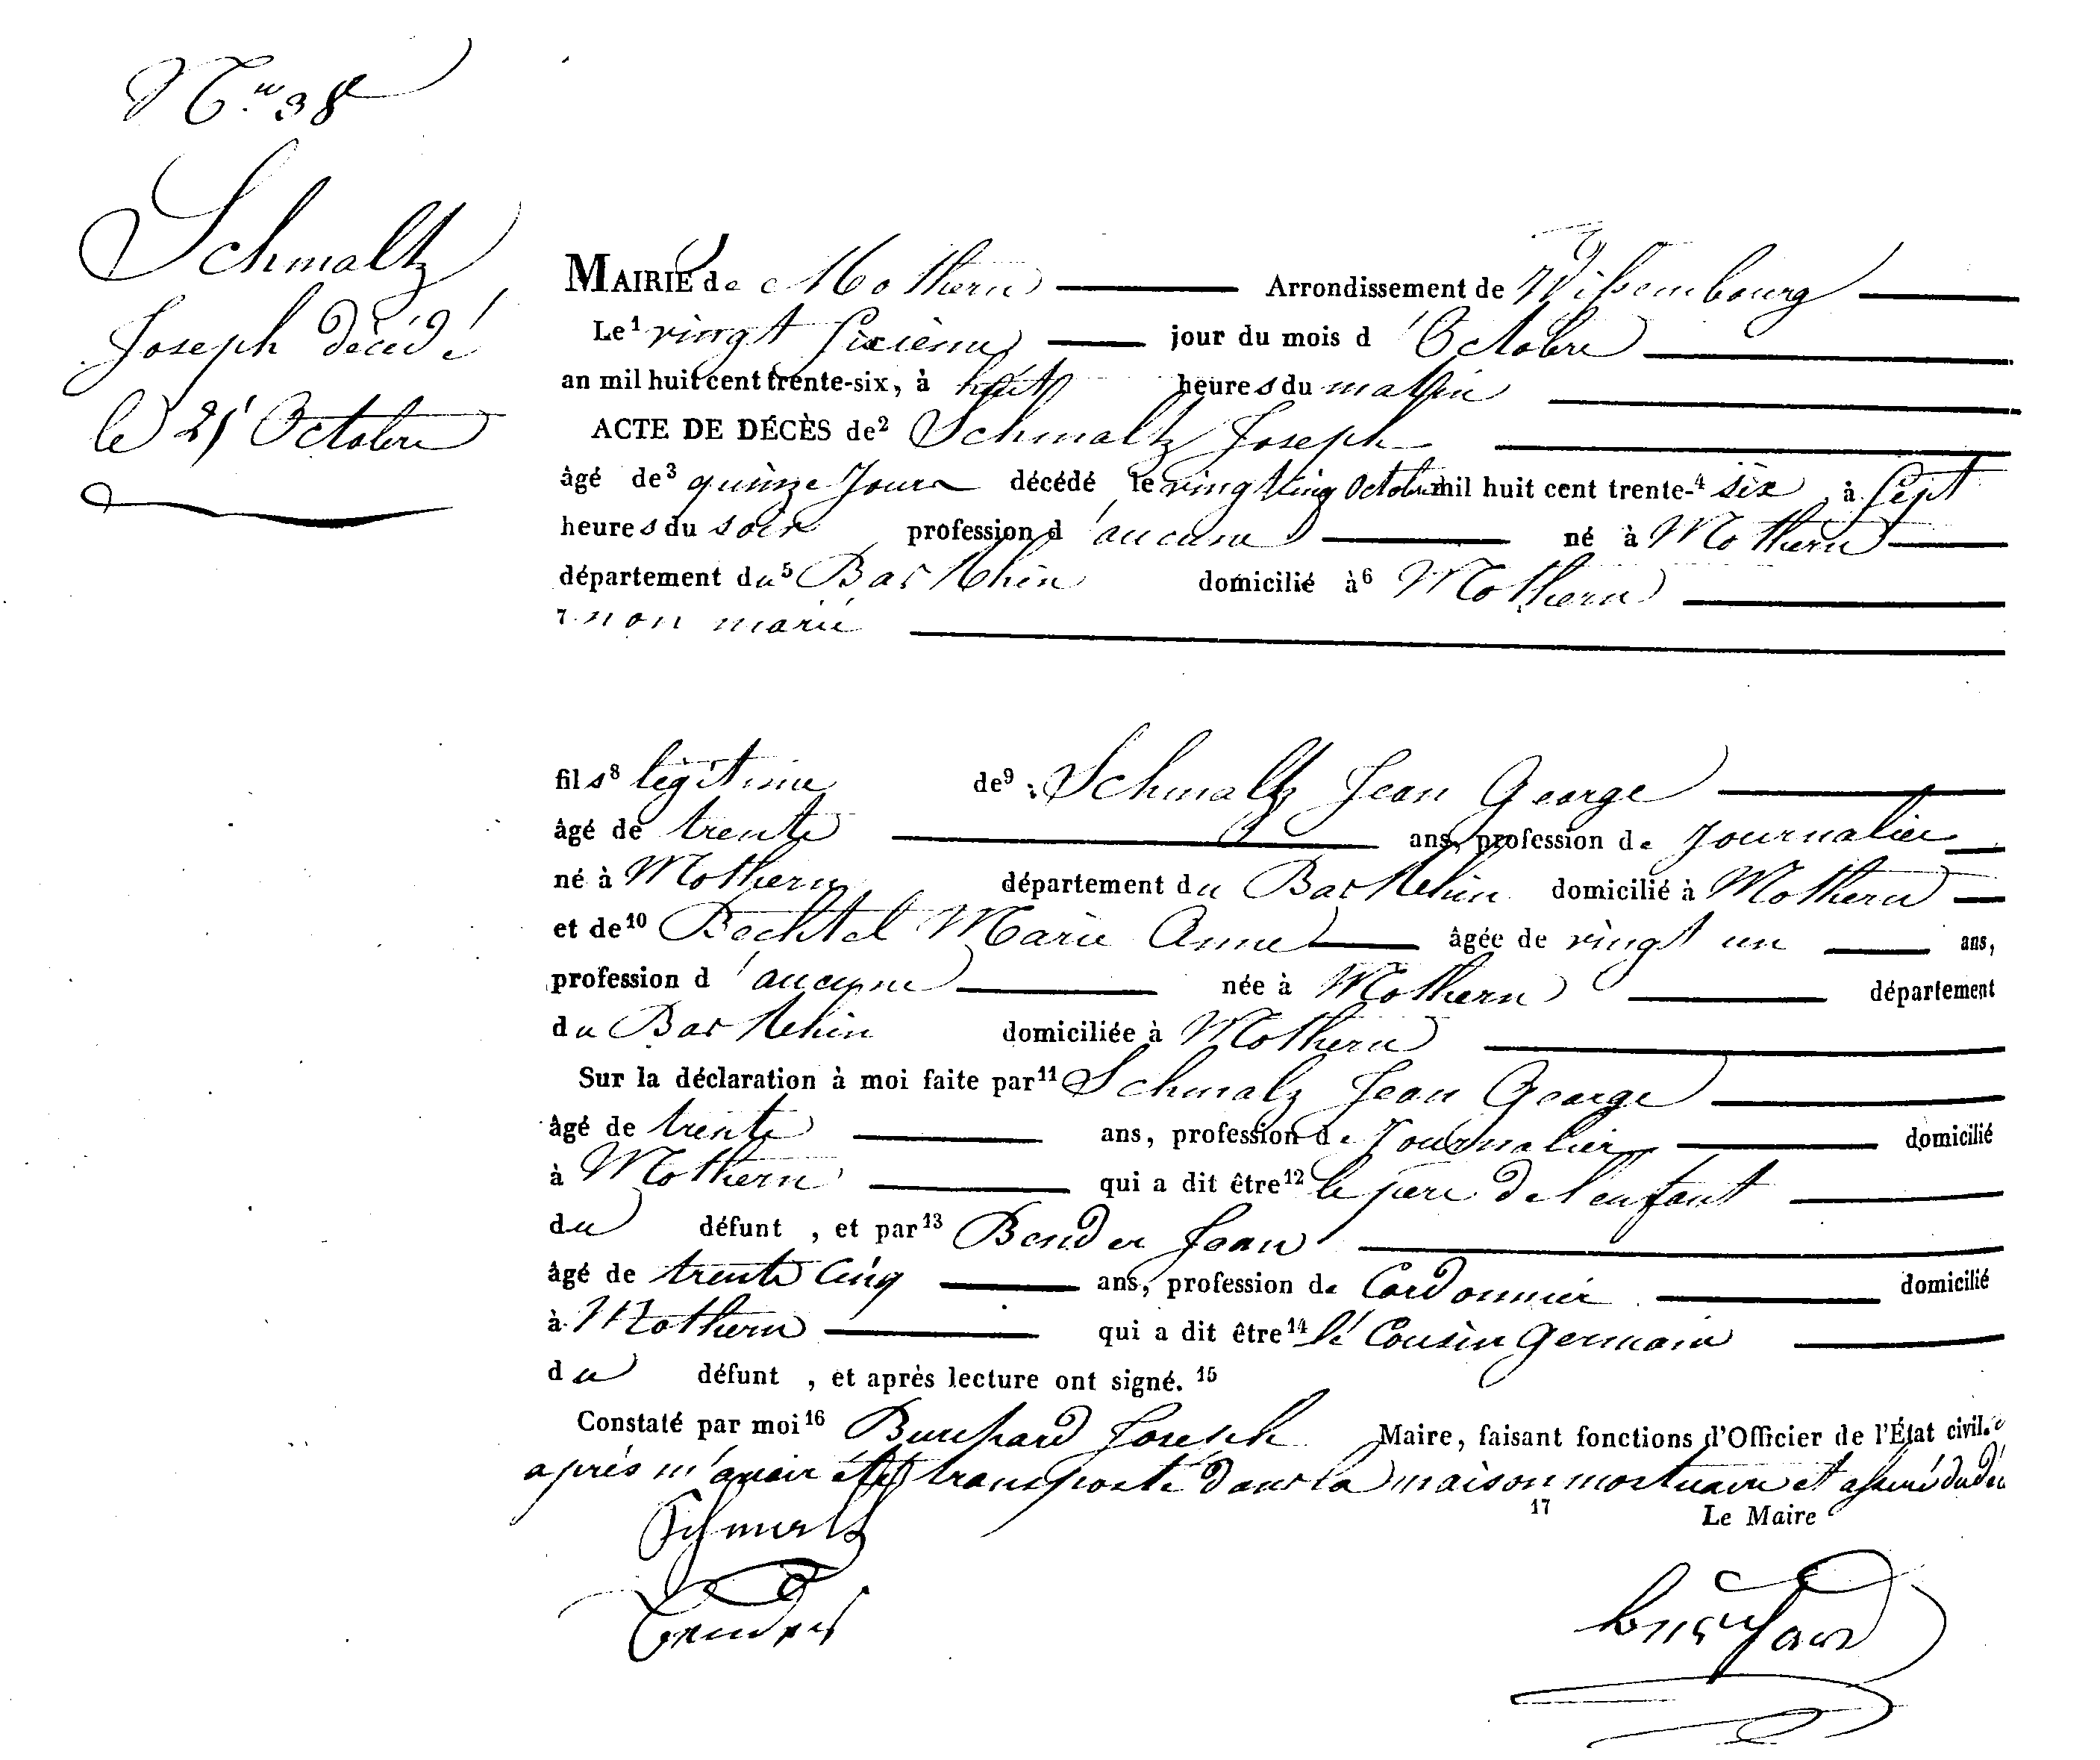 N.º 38
Schmaltz
Joseph décédé
le 25 Octobre
MAIRIE de Mothern Arrondissement de Wissembourg
Le¹ vingt sixième jour du mois d'Octobre
an mil huit cent trente-six, à huit heures du matin
ACTE DE DÉCÈS de² Schmaltz Joseph
âgé de³ quinze Jours décédé le vingt cinq Octobre mil huit cent trente-⁴ six, à Sept
heures du soir profession d'aucune né à Mothern
département du⁵ Bas Rhin domicilié à⁶ Mothern
7. non marié
fils⁸ légitime de⁹ Schmaltz Jean George
âgé de trente ans, profession de Journalier
né à Mothern département du Bas Rhin domicilié à Mothern
et de¹⁰ Bechtel Marie Anne âgée de vingt un ans,
profession d'aucune née à Mothern département
du Bas Rhin domiciliée à Mothern
Sur la déclaration à moi faite par¹¹ Schmalz Jean George
âgé de trente ans, profession de Journalier domicilié
à Mothern qui a dit être¹² le père de l'enfant
du défunt, et par¹³ Bender Jean
âgé de trente Cinq ans, profession de Cordonnier domicilié
à Mothern qui a dit être¹⁴ lé Cousin germain
du défunt, et après lecture ont signé. ¹⁵
Constaté par moi¹⁶ Burchard Joseph Maire, faisant fonctions d'Officier de l'État civil.
après m'avoir été transporté dans la maison mortuaire et assuré du dé
17 Le Maire
Schmaltz
Bender
Burchard